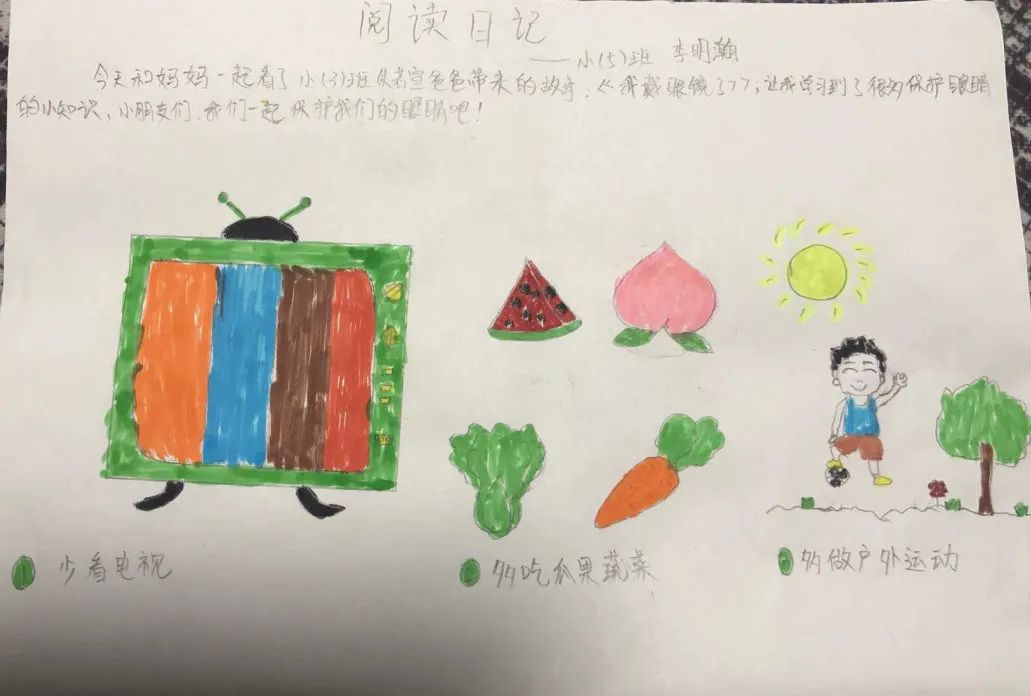 阅读日记
——小(5)班 李明瀚
今天和妈妈一起看了小(3)班 爸爸带来的故事:《我戴眼镜了》,让我学习到了很多保护眼睛
的小知识,小朋友们,我们一起保护我们的眼睛吧!
1 少看电视
2 多吃瓜果蔬菜
3 多做户外运动